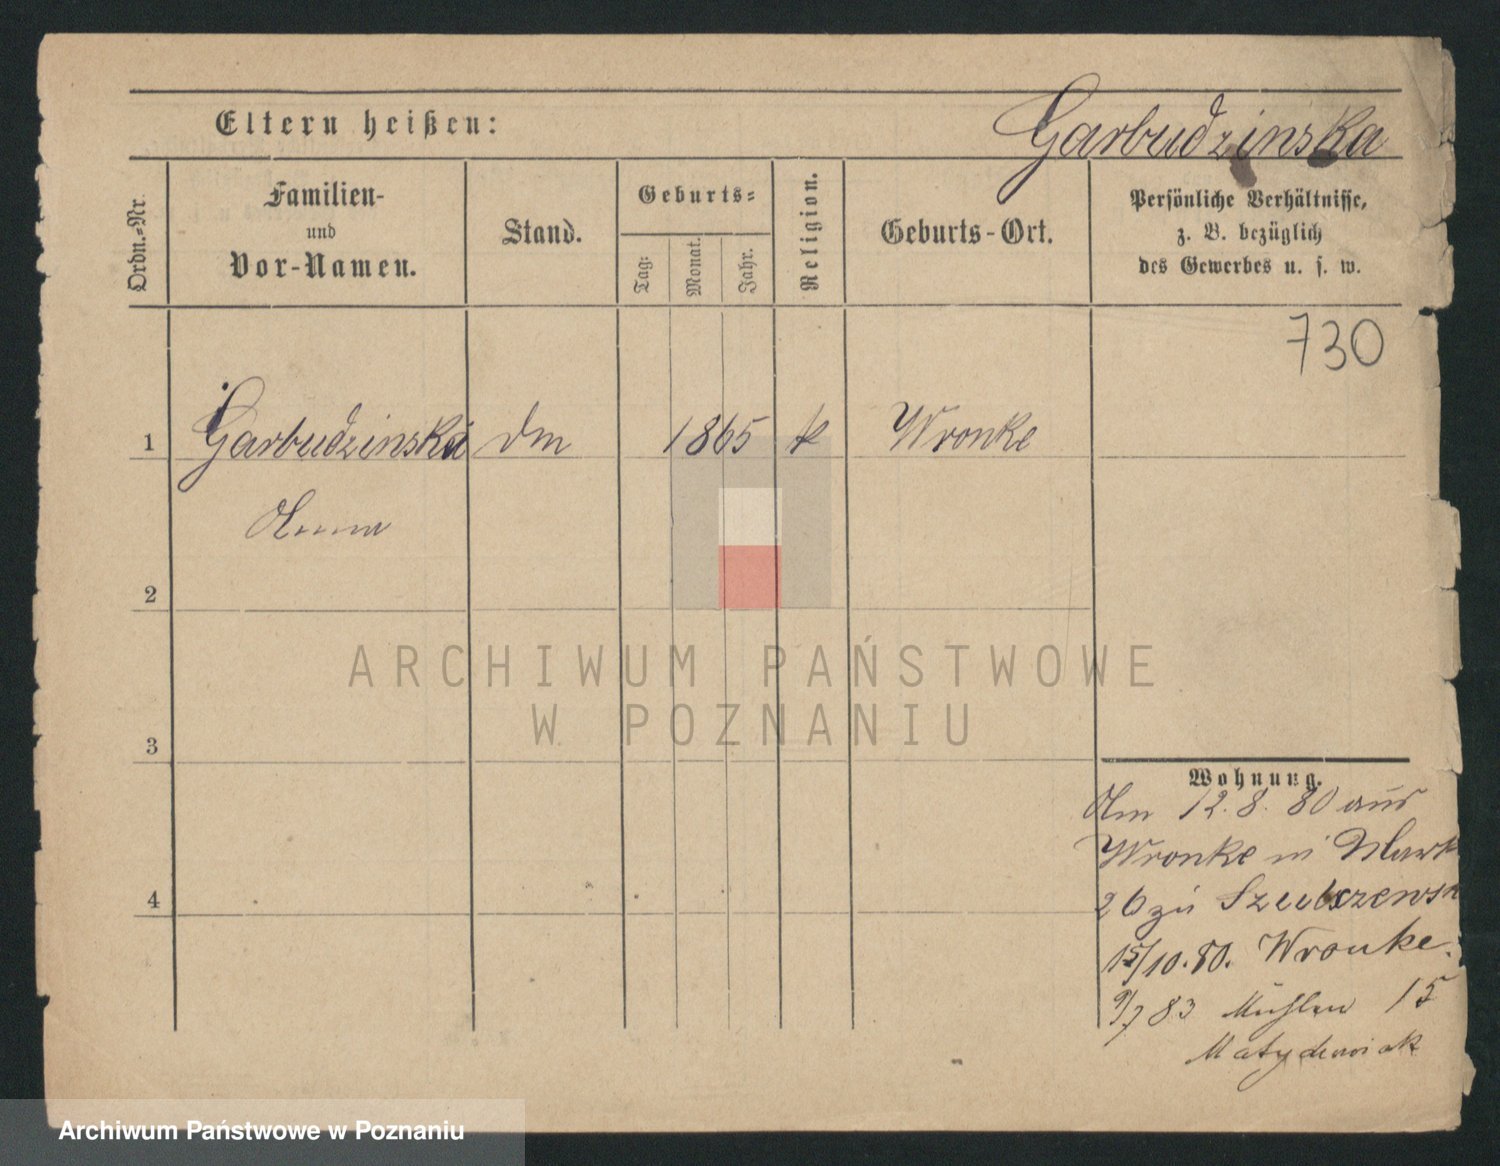 Garbudzinska
Eltern heißen:
Ordn.-Nr.
Familien-
und
Vor-Namen.
Stand.
Geburts-
Tag:
Monat.
Jahr.
Religion.
Geburts-Ort.
Persönliche Verhältnisse,
z. B. bezüglich
des Gewerbes u. s. w.
730
1 Garbudzinska dm 1865 k Wronke
Anna
2
ARCHIWUM PAŃSTWOWE
W POZNANIU
3
Wohnung.
Am 12.8.80 aus
Wronke in Mark
26 zu
4
15/10.80. Wronke.
9/7 83 Mühlen 15
Archiwum Państwowe w Poznaniu